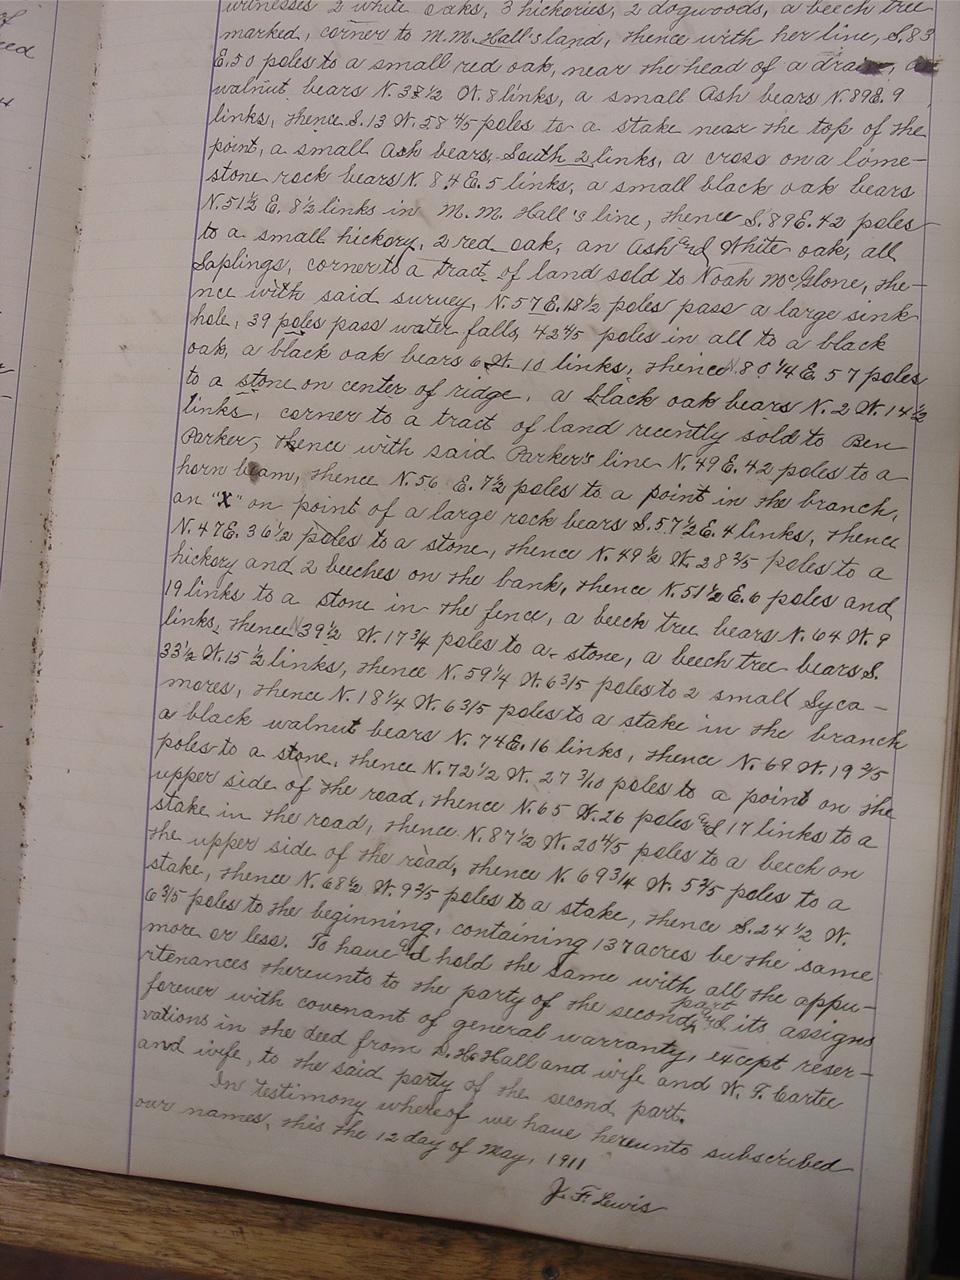 witnesses 2 white oaks, 3 hickories, 2 dogwoods, a beech tree
marked, corner to M.M. Hall's land, thence with her line, S.83
E.50 poles to a small red oak, near the head of a drain, a
walnut bears N.38½ W. 8 links, a small Ash bears N.89E. 9
links, thence S.13 W. 58 4/5 poles to a stake near the top of the
point, a small ash bears South 2 links, a cross on a lime-
stone rock bears N. 84 E. 5 links, a small black oak bears
N.51½ E. 8½ links in M.M. Hall's line, thence S.89E. 42 poles
to a small hickory, 2 red oak, an Ash and White oak, all
Saplings, corner to a tract of land sold to Noah McGlone, the-
nce with said survey, N.57E.18½ poles pass a large sink
hole, 39 poles pass water falls, 42 4/5 poles in all to a black
oak, a black oak bears 6 W. 10 links, thence N.80¼ E. 57 poles
to a stone on center of ridge, a black oak bears N. 2 W. 14½
links, corner to a tract of land recently sold to Ben
Parker, thence with said Parker's line N.49E.42 poles to a
horn beam, thence N.56 E. 7½ poles to a point in the branch,
an "X" on point of a large rock bears S.57½ E. 4 links, thence
N.47E. 36½ poles to a stone, thence N.49½ W. 28 3/5 poles to a
hickory and 2 beeches on the bank, thence N.51½ E. 6 poles and
19 links to a stone in the fence, a beech tree bears N.64 W. 9
links, thence N39½ W. 17¾ poles to a stone, a beech tree bears S.
33½ W. 15½ links, thence N.59¼ W. 6 3/5 poles to 2 small Syca-
mores, thence N.18¼ W. 6 3/5 poles to a stake in the branch
a black walnut bears N. 74E. 16 links, thence N.69 W. 19 3/5
poles to a stone, thence N.72½ W. 27 3/10 poles to a point on the
upper side of the road, thence N.65 W. 26 poles and 17 links to a
stake in the road, thence N.87½ W. 20 4/5 poles to a beech on
the upper side of the road, thence N. 69¾ W. 5 2/5 poles to a
stake, thence N.68½ W. 9 2/5 poles to a stake, thence S.24½ W.
6 3/5 poles to the beginning, containing 137 acres be the same
more or less. To have and hold the same with all the appu-
rtenances thereunto to the party of the second part and its assigns
forever with covenant of general warranty, except reser-
vations in the deed from D.H. Hall and wife and W. F. Carter
and wife, to the said party of the second part.
In testimony whereof we have hereunto subscribed
our names, this the 12 day of May, 1911
J. F. Lewis